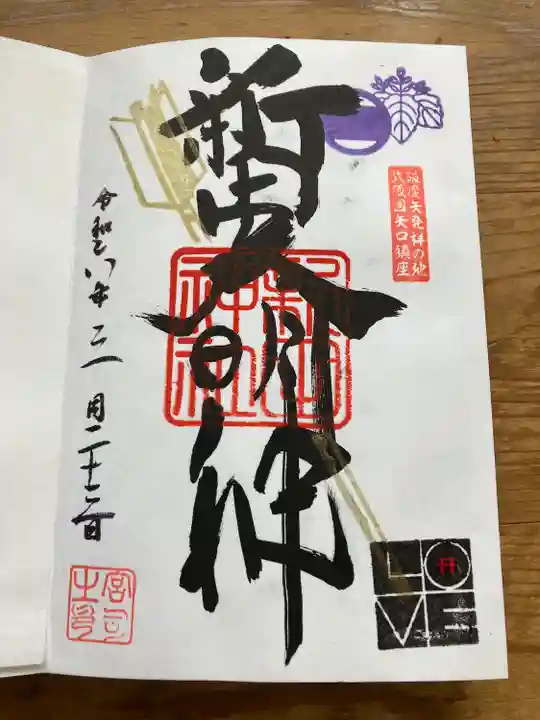 新田大明神
新田神社
破魔矢発祥の地
武蔵国矢口鎮座
令和八年三月二十二日
宮司之印
LOVE